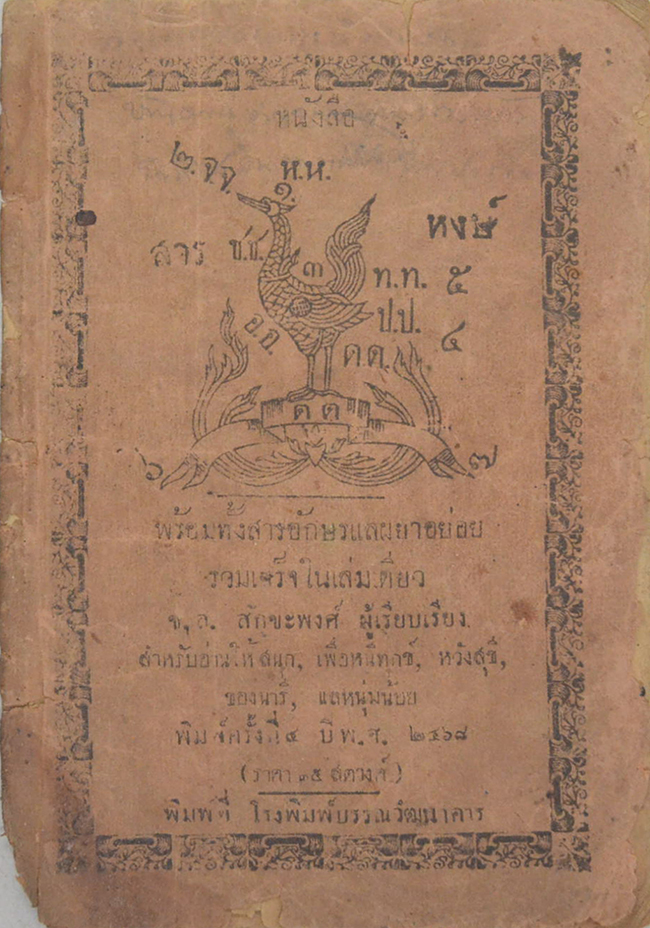 หนังสือ
๒. จ.จ. ห.ห.
๑.
สาร ช.ช. ๓ หงษ์
ท.ท. ๕
อ.อ. ป.ป. ๔
ด.ด.
ด ด
๖ ๗
พร้อมทั้งสารอักษรแลผยาอย่อย
รวมเสร็จในเล่มเดียว
สักขะพงศ์ ผู้เรียบเรียง
สำหรับอ่านให้สนุก, เพื่อหนีทุกข์, หวังสุขี,
ของนารี, แลหนุ่มน้อย
พิมพ์ครั้งที่ ๔ ปี พ.ศ. ๒๔๖๘
(ราคา ๓๕ สตางค์)
พิมพ์ที่ โรงพิมพ์บรรณวัฒนาคาร